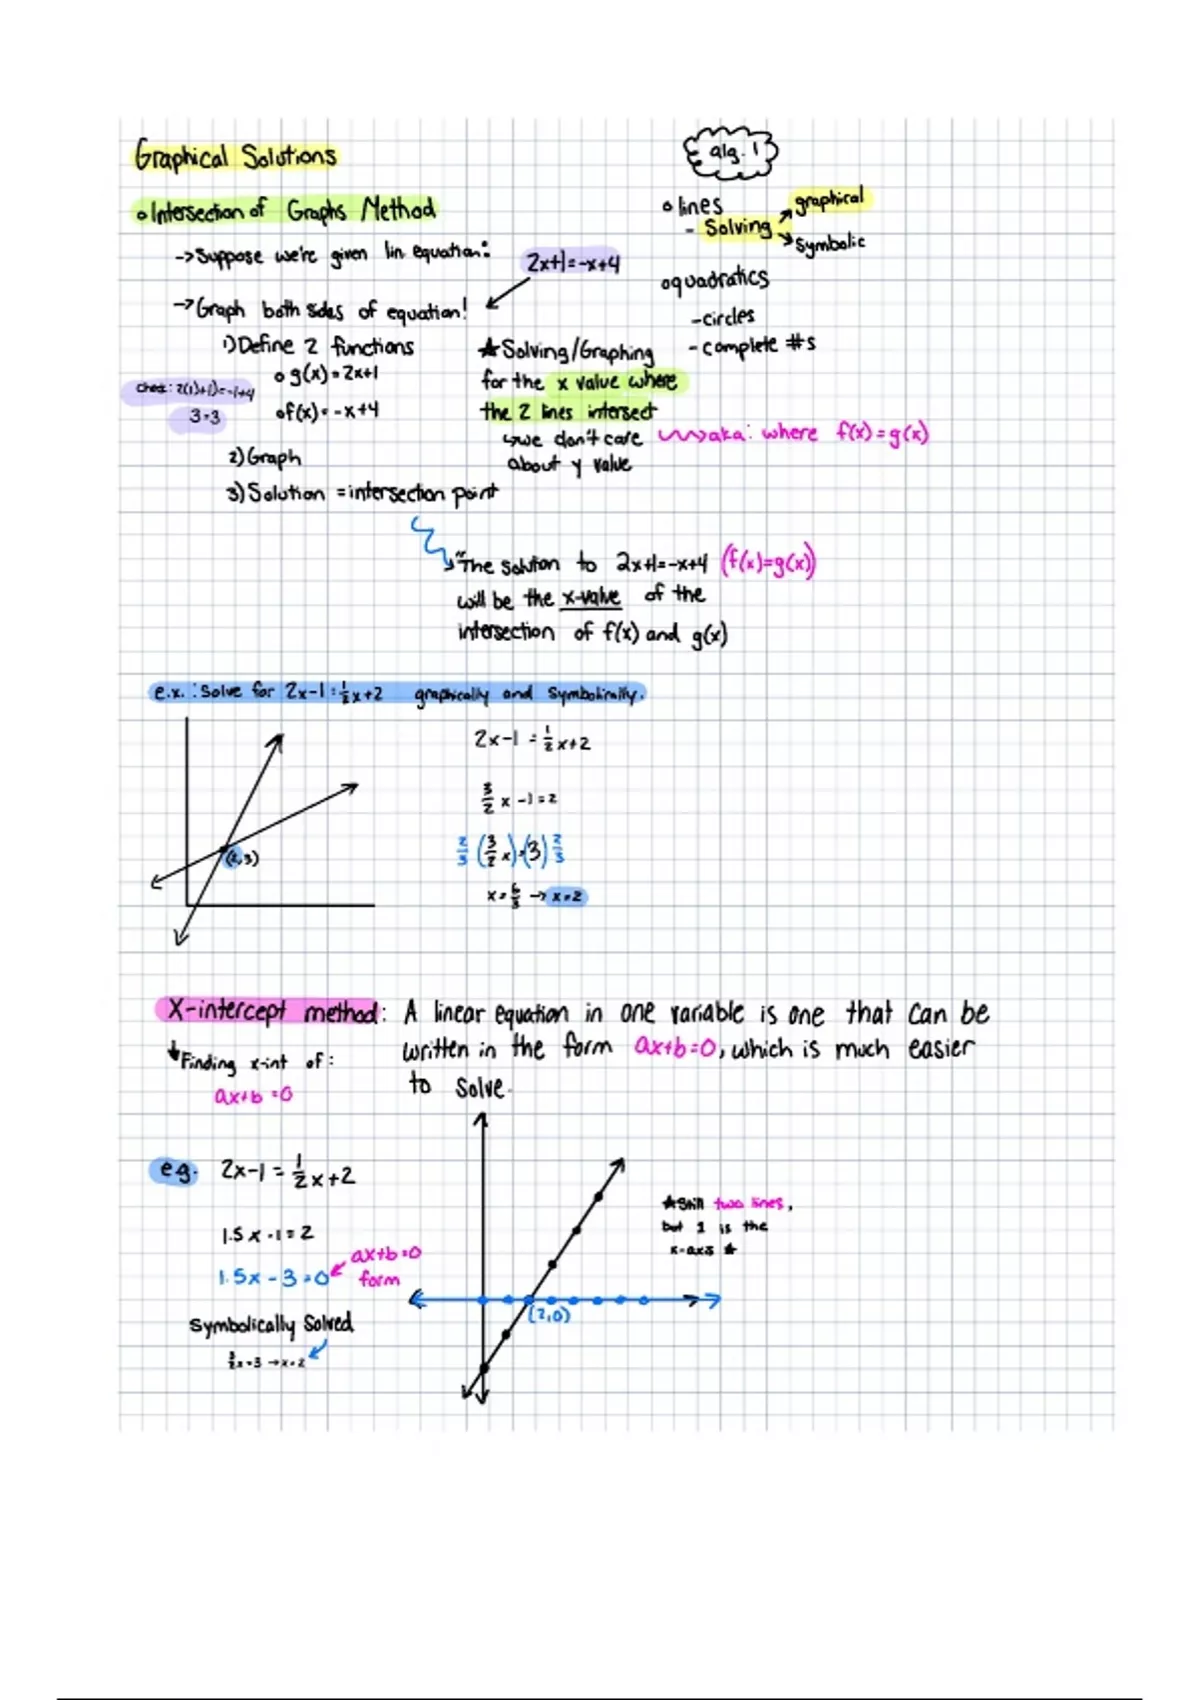 Graphical Solutions
alg. 1
o Intersection of Graphs Method
o lines
- Solving
graphical
Symbolic
-> Suppose we're given lin. equation:
2x+1=-x+4
o quadratics
- circles
- complete #s
-> Graph both sides of equation!
1) Define 2 functions
o g(x)=2x+1
o f(x)=-x+4
Check: 2(1)+1)=-1+4
3=3
★ Solving/Graphing
for the x value where
the 2 lines intersect
↳ we don't care
about y value
aka: where f(x)=g(x)
2) Graph
3) Solution = intersection point
"The solution to 2x+1=-x+4 (f(x)=g(x))
will be the x-value of the
intersection of f(x) and g(x)
e.x.: Solve for 2x-1=1/2x+2 graphically and symbolically.
(2,3)
2x-1=1/2x+2
3/2x-1=2
2/3(3/2x)=(3)2/3
x=6/3 -> x=2
X-intercept method: A linear equation in one variable is one that can be
written in the form ax+b=0, which is much easier
to solve.
Finding x-int of:
ax+b=0
e.g. 2x-1=1/2x+2
1.5x-1=2
1.5x-3=0
ax+b=0
form
Symbolically Solved
3/2x=3 -> x=2
(2,0)
★ Still two lines,
but 1 is the
x-axis ★